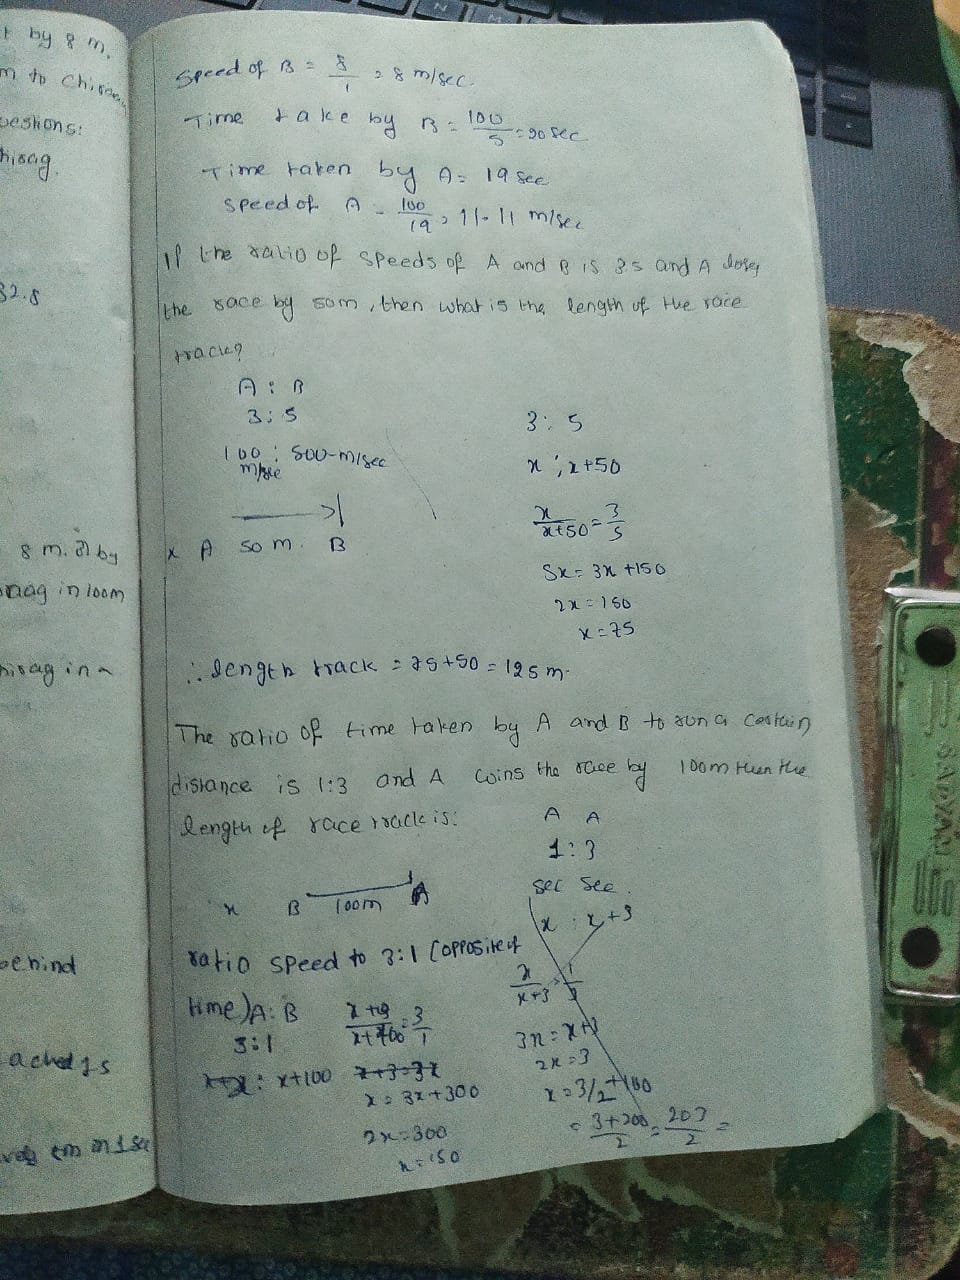 t by 8 m.
m to Chirag
uestions:
hirag.
32.8
8 m. by
raag in 100m
hirag in a
behind
ached 75
Speed of B = 5/1 = 8 m/sec.
Time take by B = 100/5 = 20 sec
Time taken by A = 19 sec
speed of A = 100/19 = 11.11 m/sec
If the ratio of speeds of A and B is 3:5 and A loses
the race by 50m, then what is the length of the race
track?
A : B
3 : 5
100 : 500-m/sec
m/sec
x A 50 m. B
3 : 5
x : x+50
x/x+50 = 3/5
5x = 3x +150
2x = 150
x = 75
∴ length track = 75+50 = 125 m.
The ratio of time taken by A and B to run a certain
distance is 1:3 and A wins the race by 100m then the
length of race track is:
A A
1 : 3
sec sec.
x B 100m A
x : x+3
ratio speed to 3:1 (opposite of
time) A : B
3 : 1
x : x+100
x+100 = 3/1
x+3=3x
x = 3x+300
2x = 300
x = 150
x/x+3 = 1/3
3x = x+3
2x = 3
x = 3/2 +100
= 3+200/2 = 203/2 =
SAPTARI